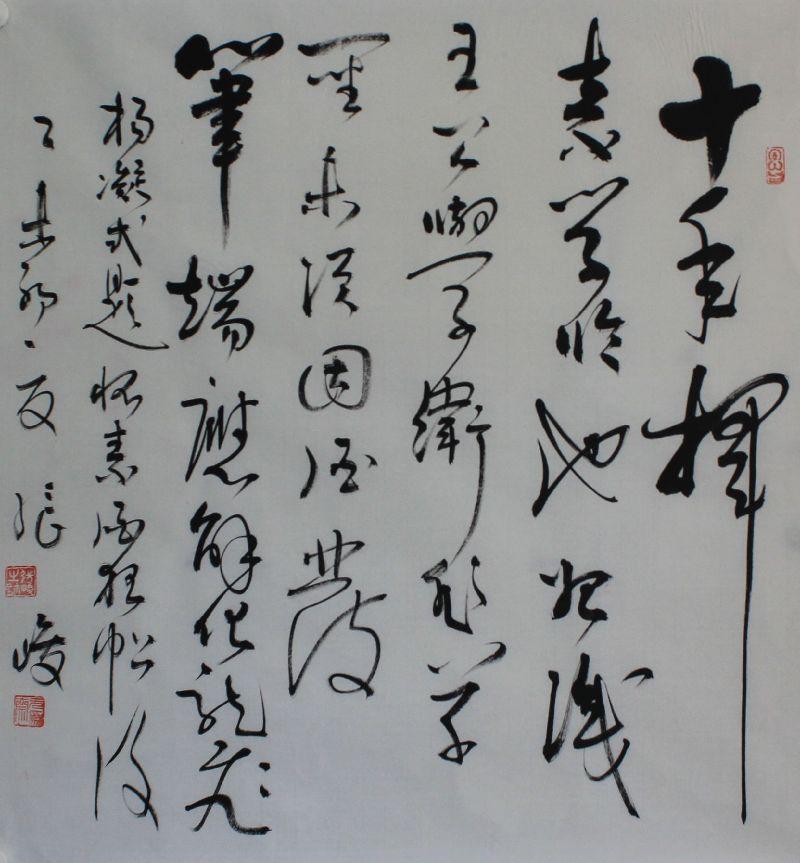 十年揮
素學臨池始識
王公學衛非草
聖未須因酒發
筆端應解化龍飛
楊凝式題懷素酒狂帖後
乙未初夏張峻